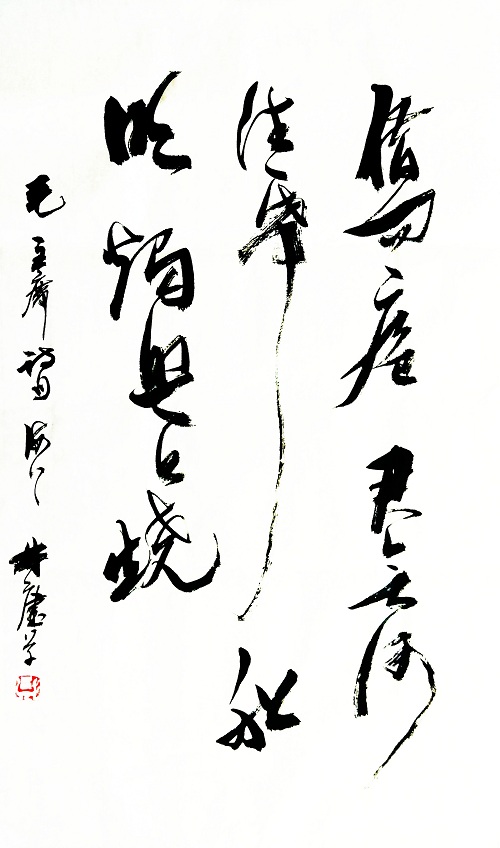 借问瘟君欲何
往纸船
明燭照天烧
毛主席诗